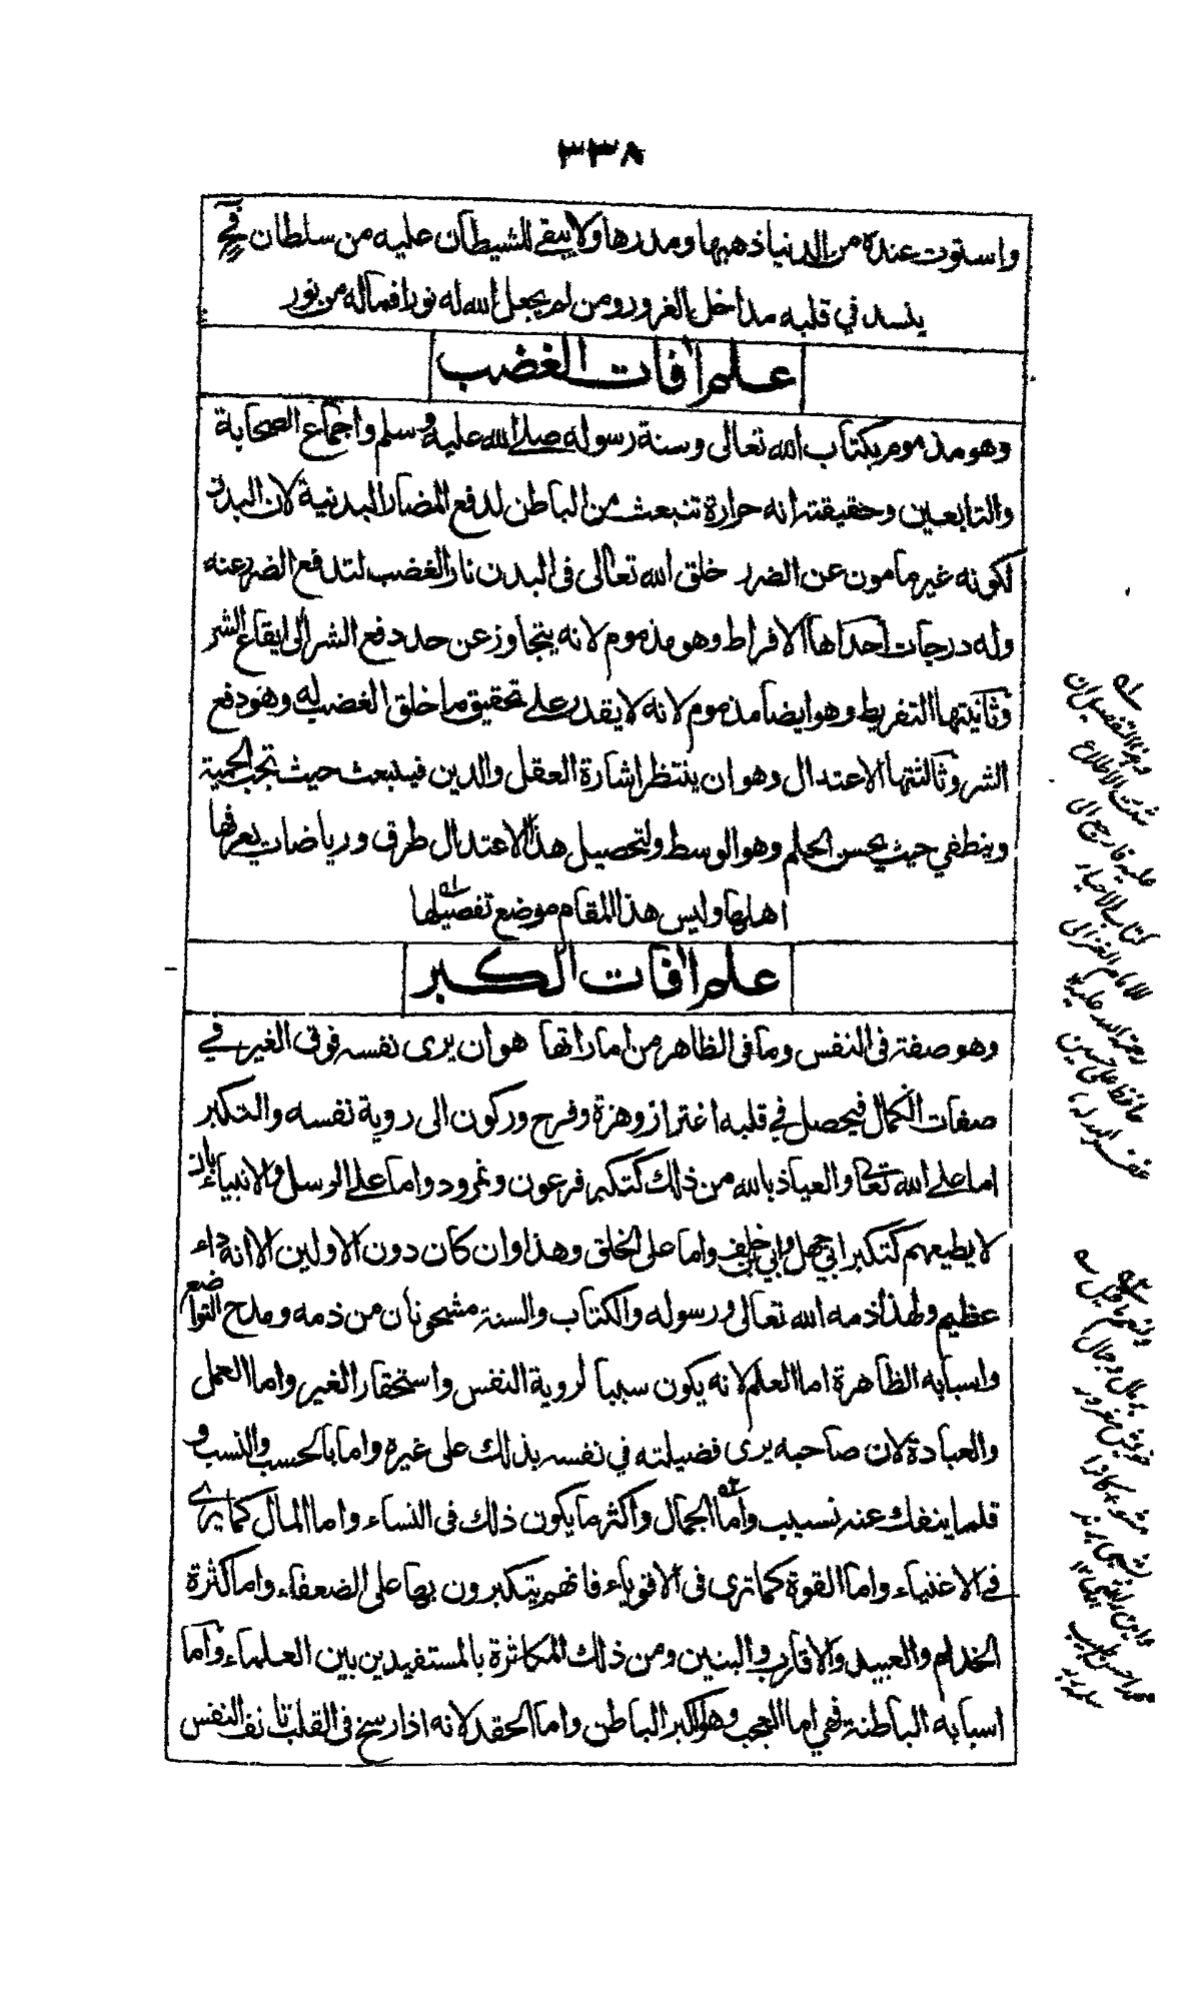 ٣٣٨
واستوت عنده من الدنيا ذهبها ومدرها ولا يبقى للشيطان عليه من سلطان فح
ينسد في قلبه مداخل الغرور ومن لم يجعل الله له نورا فماله من نور
علم افات الغضب
وهو مذموم بكتاب الله تعالى وسنة رسوله صلى الله عليه وسلم واجماع الصحابة
والتابعين وحقيقته انه حرارة تنبعث من الباطن لدفع المضار البدنية لان البدن
لكونه غير مامون عن الضرر خلق الله تعالى فى البدن نار الغضب لتدفع الضرر عنه
وله درجات احداها الافراط وهو مذموم لانه يتجاوز عن حد دفع الشر الى ايقاع الشر
وثانيتها التفريط وهو ايضا مذموم لانه لا يقدر على تحقيق ما خلق الغضب له وهو دفع
الشر وثالثتها الاعتدال وهو ان ينتظر اشارة العقل والدين فينبعث حيث تجب الحمية
وينطفي حيث يحسن الحلم وهو الوسط ولتحصيل هذا الاعتدال طرق ورياضات يعرفها
اهلها وليس هذا المقام موضع تفصيلها
علم افات الكبر
وهو صفة فى النفس وما فى الظاهر من اماراتها هو ان يرى نفسه فوق الغير في
صفات الكمال فيحصل في قلبه اغترار وهزة وفرح وركون الى روية نفسه والتكبر
اما على الله تعالى والعياذ بالله من ذلك كتكبر فرعون ونمرود واما على الرسل والانبياء بان
لا يطيعهم كتكبر ابي جهل وابي بن خلف واما على الخلق وهذا وان كان دون الاولين الا انه داء
عظيم ولهذا ذمه الله تعالى ورسوله والكتاب والسنة مشحونان من ذمه ومدح التواضع
واسبابه الظاهرة اما العلم لانه يكون سببا لروية النفس واستحقار الغير واما العمل
والعبادة لان صاحبه يرى فضيلته في نفسه بذلك على غيره واما بالحسب والنسب و
قلما ينفك عنه نسيب واما الجمال واكثر ما يكون ذلك فى النساء واما المال كما يرى
في الاغنياء واما القوة كما ترى فى الاقوياء فانهم يتكبرون بها على الضعفاء واما كثرة
الخدام والعبيد والاقارب والبنين ومن ذلك المكاثرة بالمستفيدين بين العلماء واما
اسبابه الباطنة فهي اما العجب وهو الكبر الباطن واما الحقد لانه اذا رسخ فى القلب تانف النفس
شئت الاطلاع
عليه فارجع الى
كتاب الاحياء
للامام الغزالى
رحمة الله عليه
حافظ على حسين